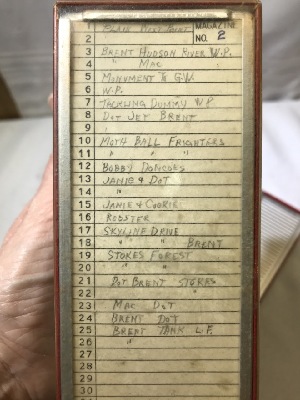 1 BLAIR WEST POINT MAGAZINE
2 NO. 2
3 BRENT HUDSON RIVER W.P.
4 " MAC
5 MONUMENT TO G.W.
6 W.P.
7 TACKLING DUMMY W.P.
8 DOT JET BRENT
9
10 MOTH BALL FRIGHTERS
11 " " "
12 BOBBY
13 JANIE & DOT
14 "
15 JANIE & COOKIE
16 ROOSTER
17 SKYLINE DRIVE
18 " " BRENT
19 STOKES FOREST
20 " "
21 DOT BRENT STOKES
22 "
23 MAC DOT
24 BRENT DOT
25 BRENT TANK L.F.
26 "
27
28
29
30